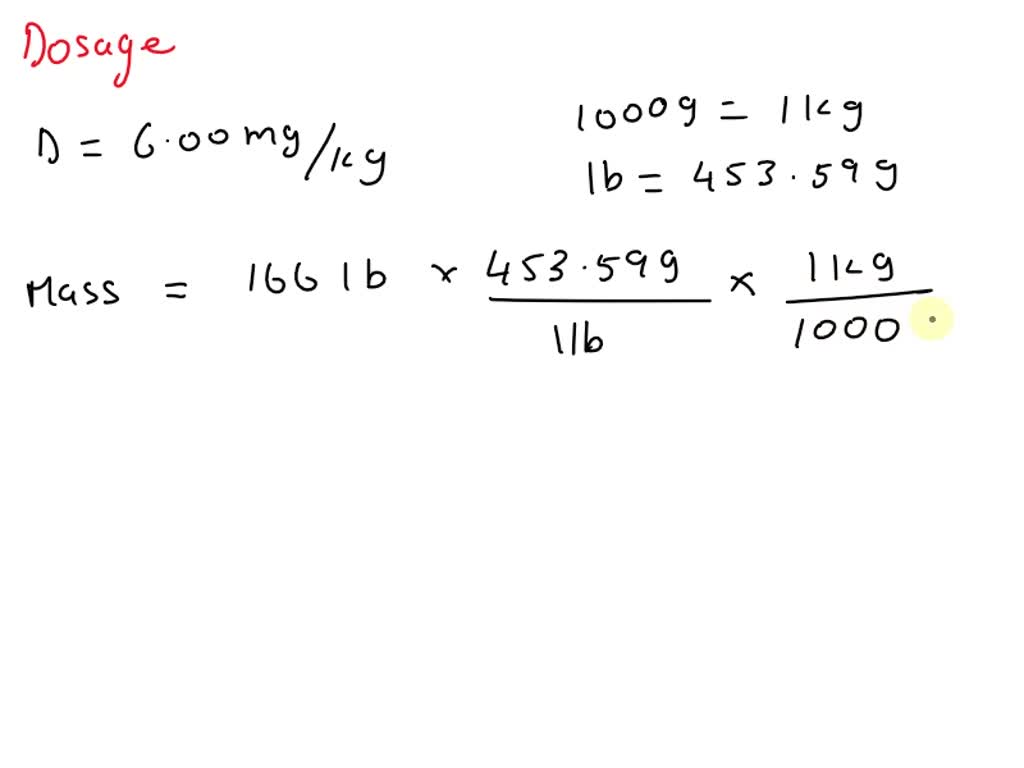 Dosage
D = 6.00 mg/kg
1000g = 1kg
lb = 453.59 g
Mass = 166 lb × 453.59g / 1lb × 1kg / 1000